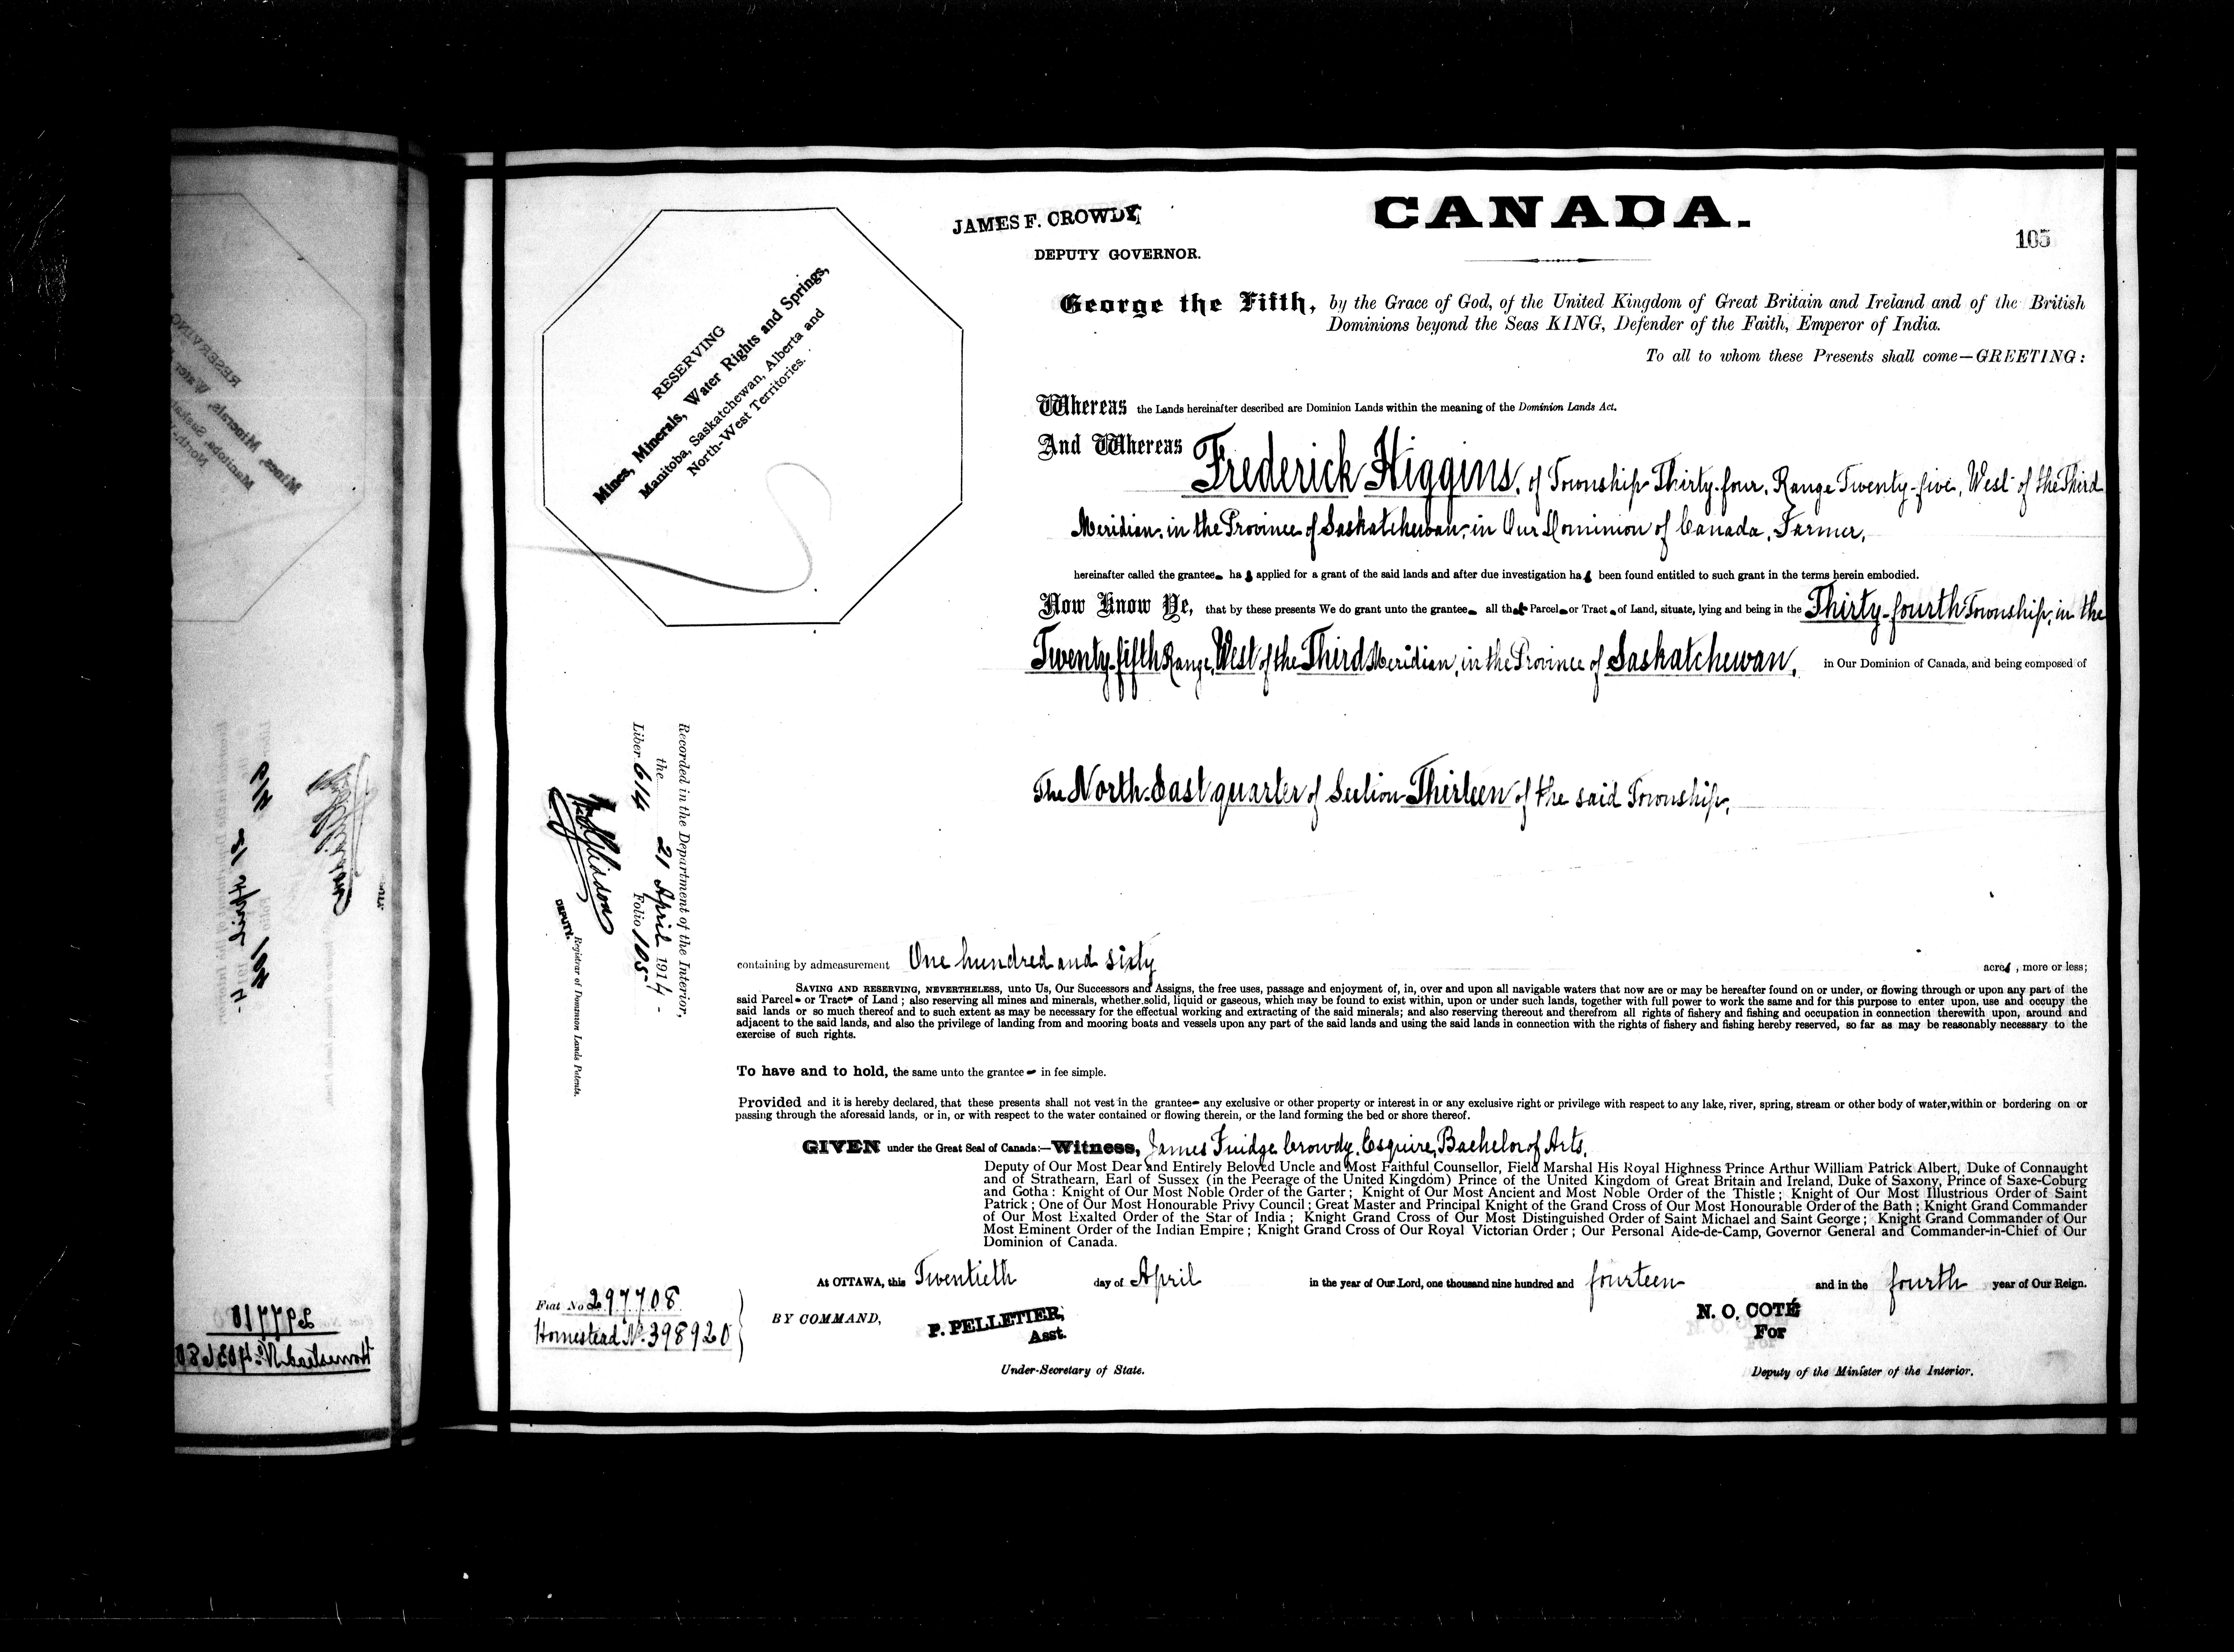 JAMES F. CROWDY,
DEPUTY GOVERNOR.
CANADA.
105
RESERVING
Mines, Minerals, Water Rights and Springs,
Manitoba, Saskatchewan, Alberta and
North-West Territories.
George the Fifth, by the Grace of God, of the United Kingdom of Great Britain and Ireland and of the British
Dominions beyond the Seas KING, Defender of the Faith, Emperor of India.
To all to whom these Presents shall come—GREETING:
Whereas the Lands hereinafter described are Dominion Lands within the meaning of the Dominion Lands Act.
And Whereas Frederick Higgins, of Township Thirty-four, Range Twenty-five, West of the Third
Meridian, in the Province of Saskatchewan, in Our Dominion of Canada, Farmer,
hereinafter called the grantee ha s applied for a grant of the said lands and after due investigation ha s been found entitled to such grant in the terms herein embodied.
Now Know Ye, that by these presents We do grant unto the grantee all that Parcel or Tract of Land, situate, lying and being in the Thirty-fourth Township, in the
Twenty-fifth Range, West of the Third Meridian, in the Province of Saskatchewan, in Our Dominion of Canada, and being composed of
The North-East quarter of Section Thirteen of the said Township,
Recorded in the Department of the Interior,
the 21 April 1914 -
Liber 614 Folio 105
DEPUTY. Registrar of Dominion Lands Patents.
containing by admeasurement One hundred and sixty acres, more or less;
SAVING AND RESERVING, NEVERTHELESS, unto Us, Our Successors and Assigns, the free uses, passage and enjoyment of, in, over and upon all navigable waters that now are or may be hereafter found on or under, or flowing through or upon any part of the
said Parcel or Tract of Land; also reserving all mines and minerals, whether solid, liquid or gaseous, which may be found to exist within, upon or under such lands, together with full power to work the same and for this purpose to enter upon, use and occupy the
said lands or so much thereof and to such extent as may be necessary for the effectual working and extracting of the said minerals; and also reserving thereout and therefrom all rights of fishery and fishing and occupation in connection therewith upon, around and
adjacent to the said lands, and also the privilege of landing from and mooring boats and vessels upon any part of the said lands and using the said lands in connection with the rights of fishery and fishing hereby reserved, so far as may be reasonably necessary to the
exercise of such rights.
To have and to hold, the same unto the grantee in fee simple.
Provided and it is hereby declared, that these presents shall not vest in the grantee any exclusive or other property or interest in or any exclusive right or privilege with respect to any lake, river, spring, stream or other body of water, within or bordering on or
passing through the aforesaid lands, or in, or with respect to the water contained or flowing therein, or the land forming the bed or shore thereof.
GIVEN under the Great Seal of Canada:—Witness, James Fuidge Crowdy, Esquire, Bachelor of Arts,
Deputy of Our Most Dear and Entirely Beloved Uncle and Most Faithful Counsellor, Field Marshal His Royal Highness Prince Arthur William Patrick Albert, Duke of Connaught
and of Strathearn, Earl of Sussex (in the Peerage of the United Kingdom) Prince of the United Kingdom of Great Britain and Ireland, Duke of Saxony, Prince of Saxe-Coburg
and Gotha: Knight of Our Most Noble Order of the Garter; Knight of Our Most Ancient and Most Noble Order of the Thistle; Knight of Our Most Illustrious Order of Saint
Patrick; One of Our Most Honourable Privy Council; Great Master and Principal Knight of the Grand Cross of Our Most Honourable Order of the Bath; Knight Grand Commander
of Our Most Exalted Order of the Star of India; Knight Grand Cross of Our Most Distinguished Order of Saint Michael and Saint George; Knight Grand Commander of Our
Most Eminent Order of the Indian Empire; Knight Grand Cross of Our Royal Victorian Order; Our Personal Aide-de-Camp, Governor General and Commander-in-Chief of Our
Dominion of Canada.
At OTTAWA, this Twentieth day of April in the year of Our Lord, one thousand nine hundred and fourteen and in the fourth year of Our Reign.
Fiat No 297708
Homestead No. 398920
BY COMMAND,
P. PELLETIER,
Asst.
Under-Secretary of State.
N. O. COTÉ
For
Deputy of the Minister of the Interior.